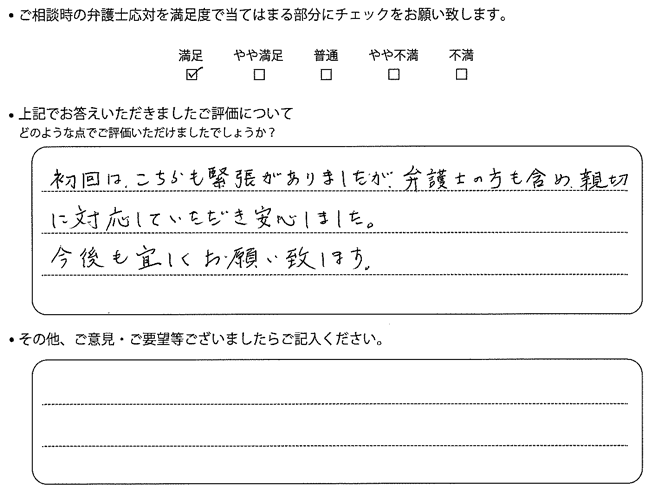 • ご相談時の弁護士応対を満足度で当てはまる部分にチェックをお願い致します。
満足 やや満足 普通 やや不満 不満
☑ □ □ □ □
• 上記でお答えいただきましたご評価について
どのような点でご評価いただけましたでしょうか？
初回は、こちらも緊張がありましたが、弁護士の方も含め、親切
に対応していただき安心しました。
今後も宜しくお願い致します。
• その他、ご意見・ご要望等ございましたらご記入ください。